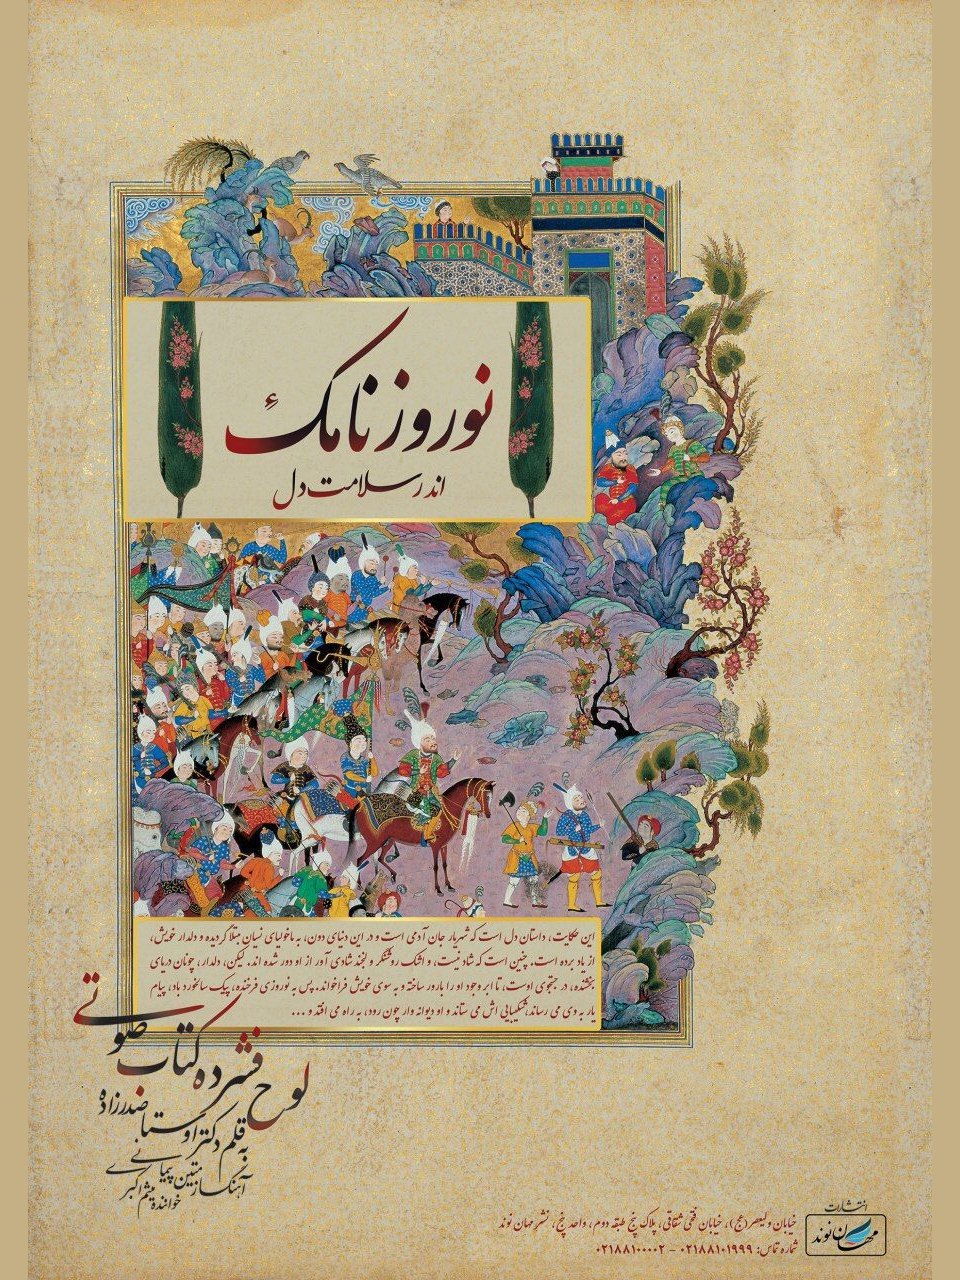 نوروزنامکـ ـۀ
اندر سلامت دل
این حکایت، داستان دل است که شهریار جان آدمی است و در این دنیای دون، به ماخولیای نسیان مبتلا گردیده و دلدار خویش،
از یاد برده است. چنین است که شاد نیست، و اشک روشنگر و لبخند شادی آور از او دور شده اند. لیکن، دلدار، چونان دریای
بخشنده، در جستجوی اوست، تا ابر وجود او را بارور ساخته و به سوی خویش فراخواند. پس به نوروزی فرخنده، پیک سالخورد باد، پیام
یار به وی می رساند، شکیبایی اش می ستاند و او دیوانه وار چون رود، به راه می افتد و ...
لوح فشرده کتاب صوتی
به قلم دکتر اوستا صدرزاده
آهنگساز متین پیمانی
خواننده میثم اکبری
انتشارات
مهان نوند
خیابان ولیعصر (عج)، خیابان فتحی شقاقی، پلاک پنج طبقه دوم، واحد پنج، نشر مهان نوند
شماره تماس: ۰۲۱۸۸۱۰۱۹۹۹ - ۰۲۱۸۸۱۰۰۰۰۲